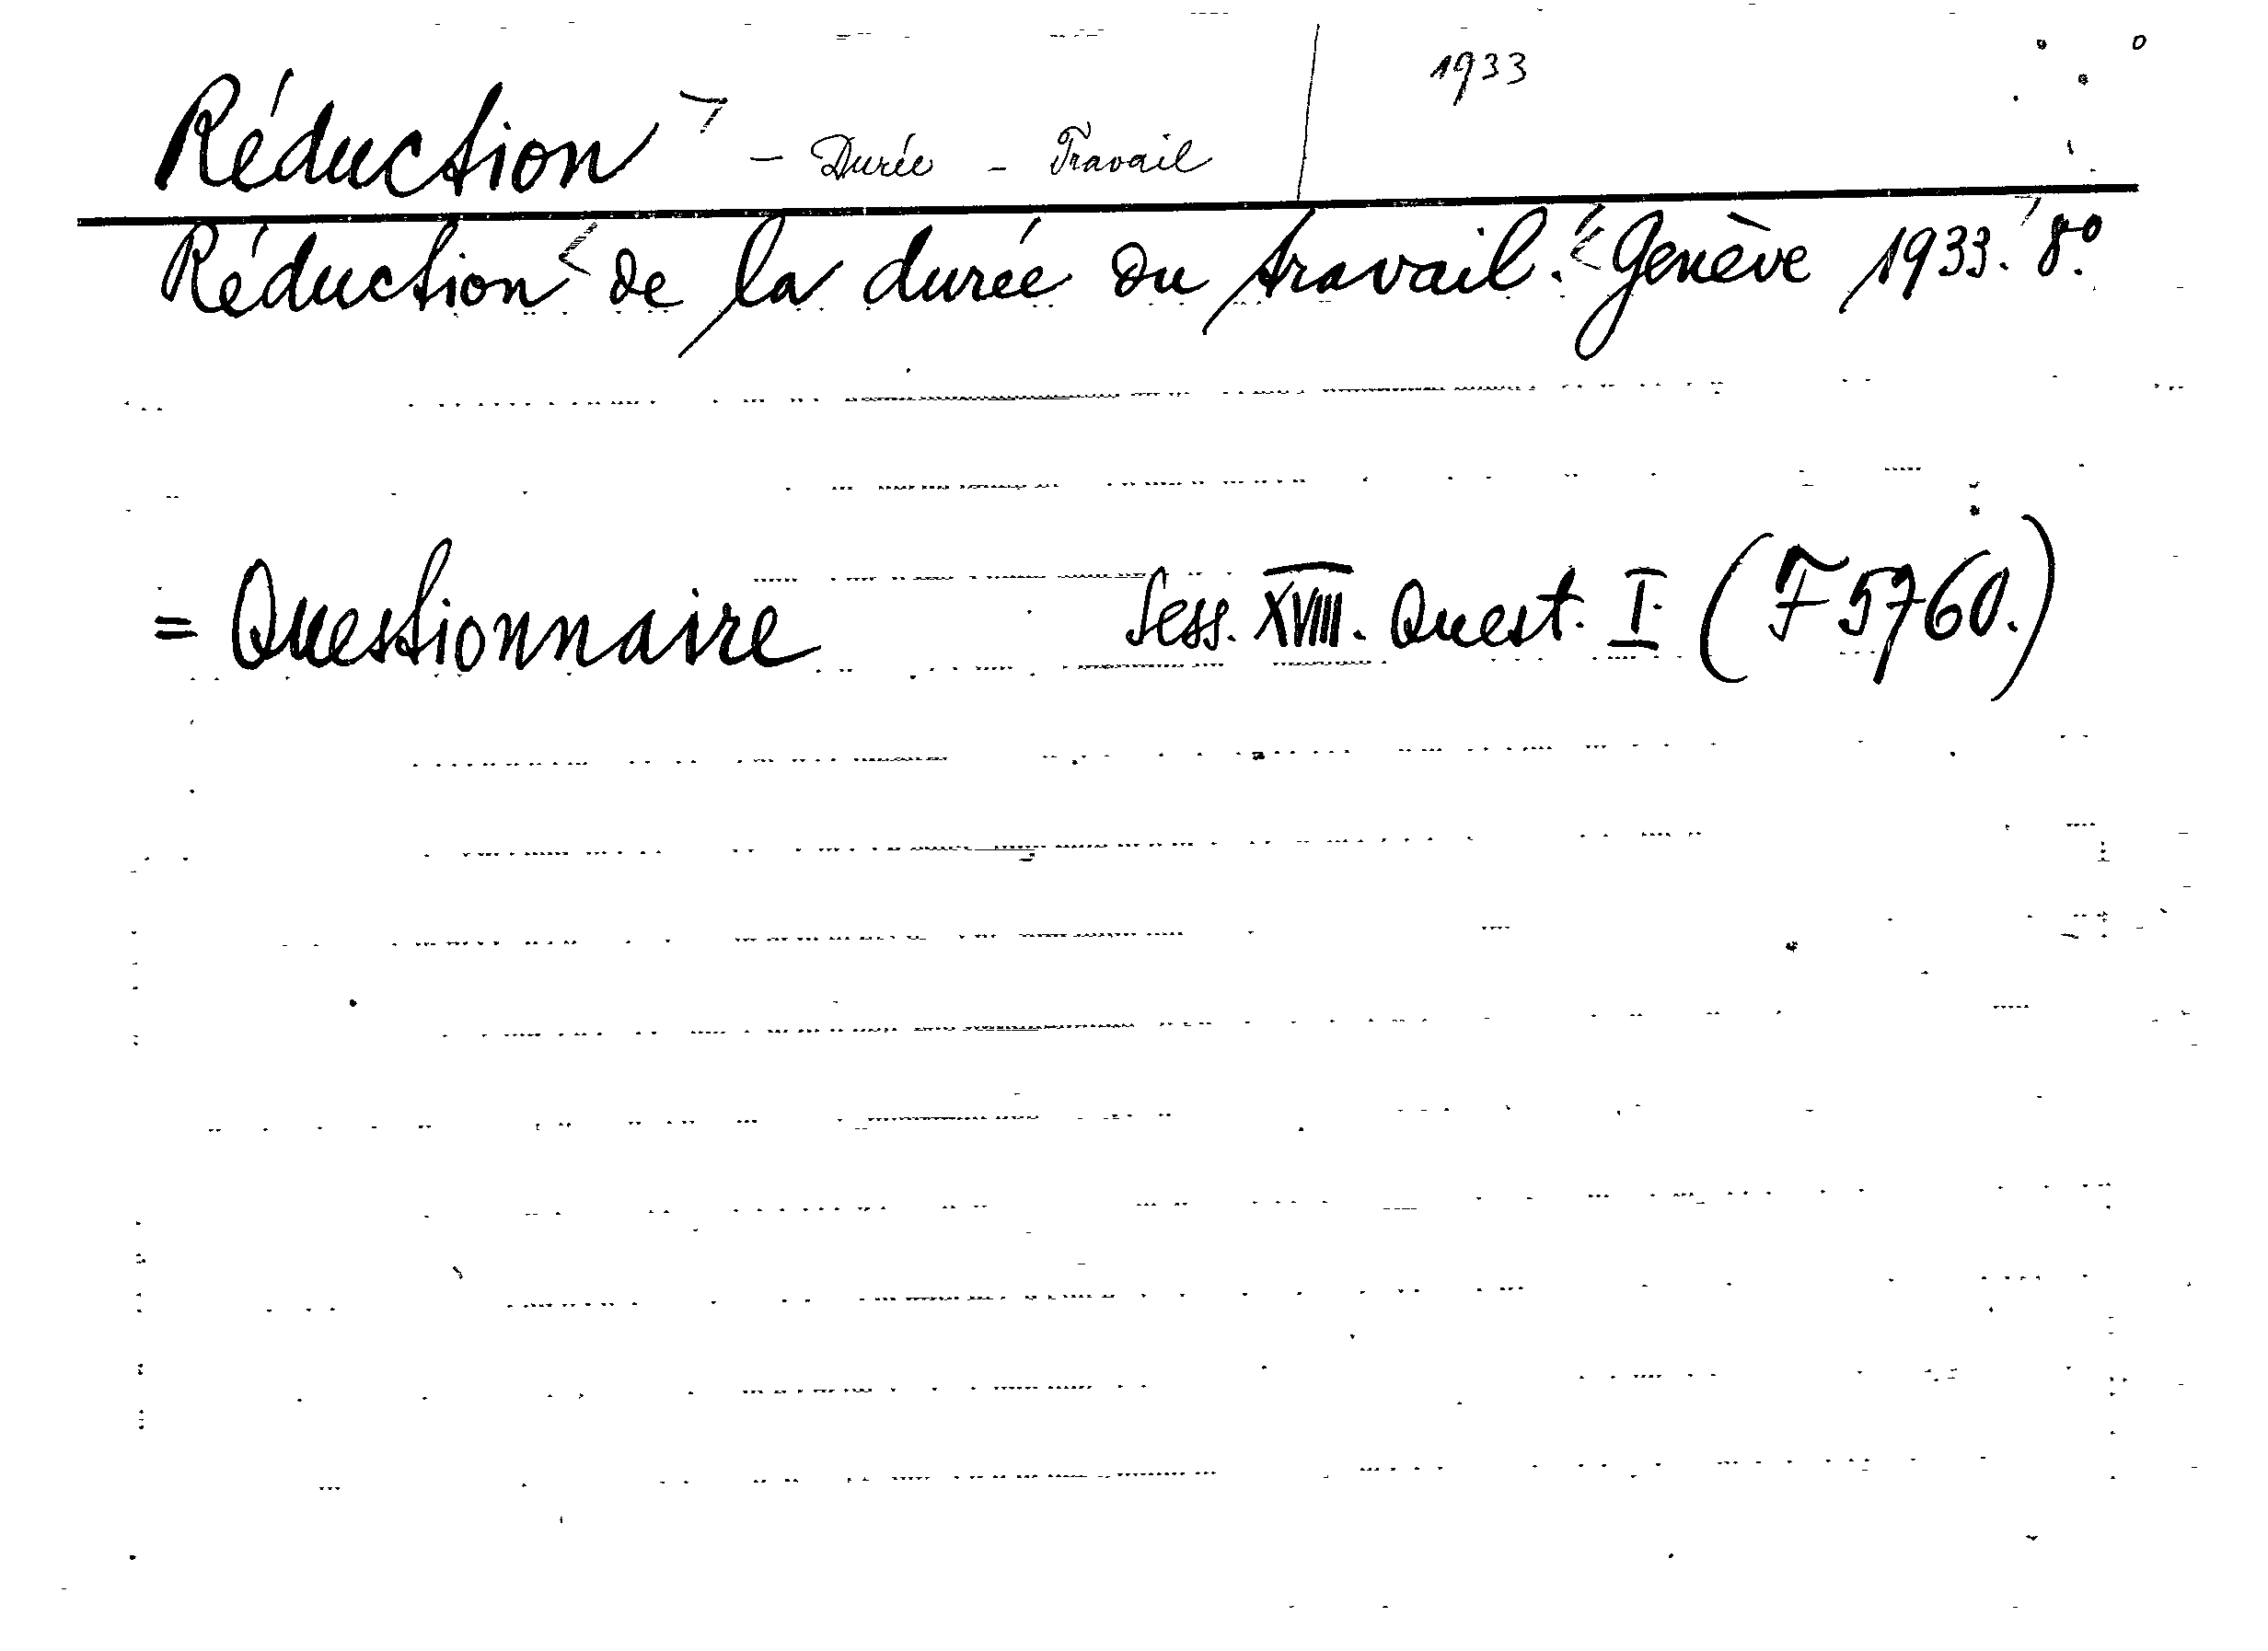 Réduction - Durée - Travail 1933
Réduction de la durée du travail. Genève 1933. 8º.
= Questionnaire Sess. XVIII. Quest. I (F 5760.)